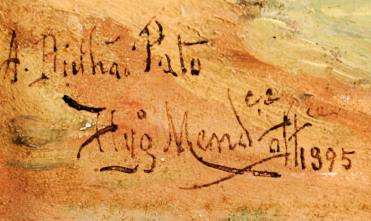 A. Bulhão Pato
Hyg Mend
1895